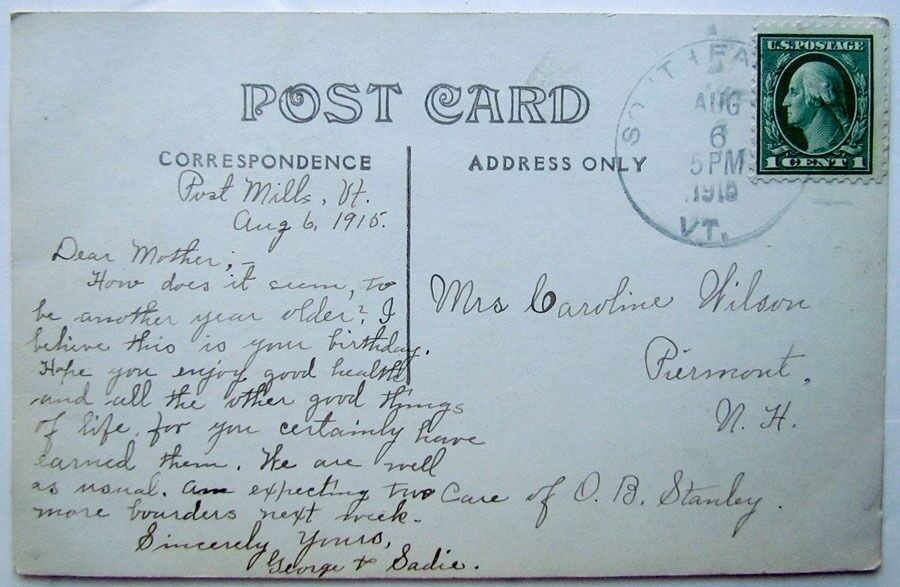 POST CARD
CORRESPONDENCE
ADDRESS ONLY
U.S. POSTAGE
1 CENT 1
AUG
6
5 PM
VT.
Post Mills, Vt.
Aug 6, 1915.
Dear Mother; –
How does it seem, to
be another year older? I
believe this is your birthday.
Hope you enjoy good health
and all the other good things
of life, for you certainly have
earned them. We are well
as usual. am expecting two
more boarders next week.
Sincerely Yours,
George & Sadie.
Mrs Caroline Wilson
Piermont,
N. H.
Care of O. B. Stanley.